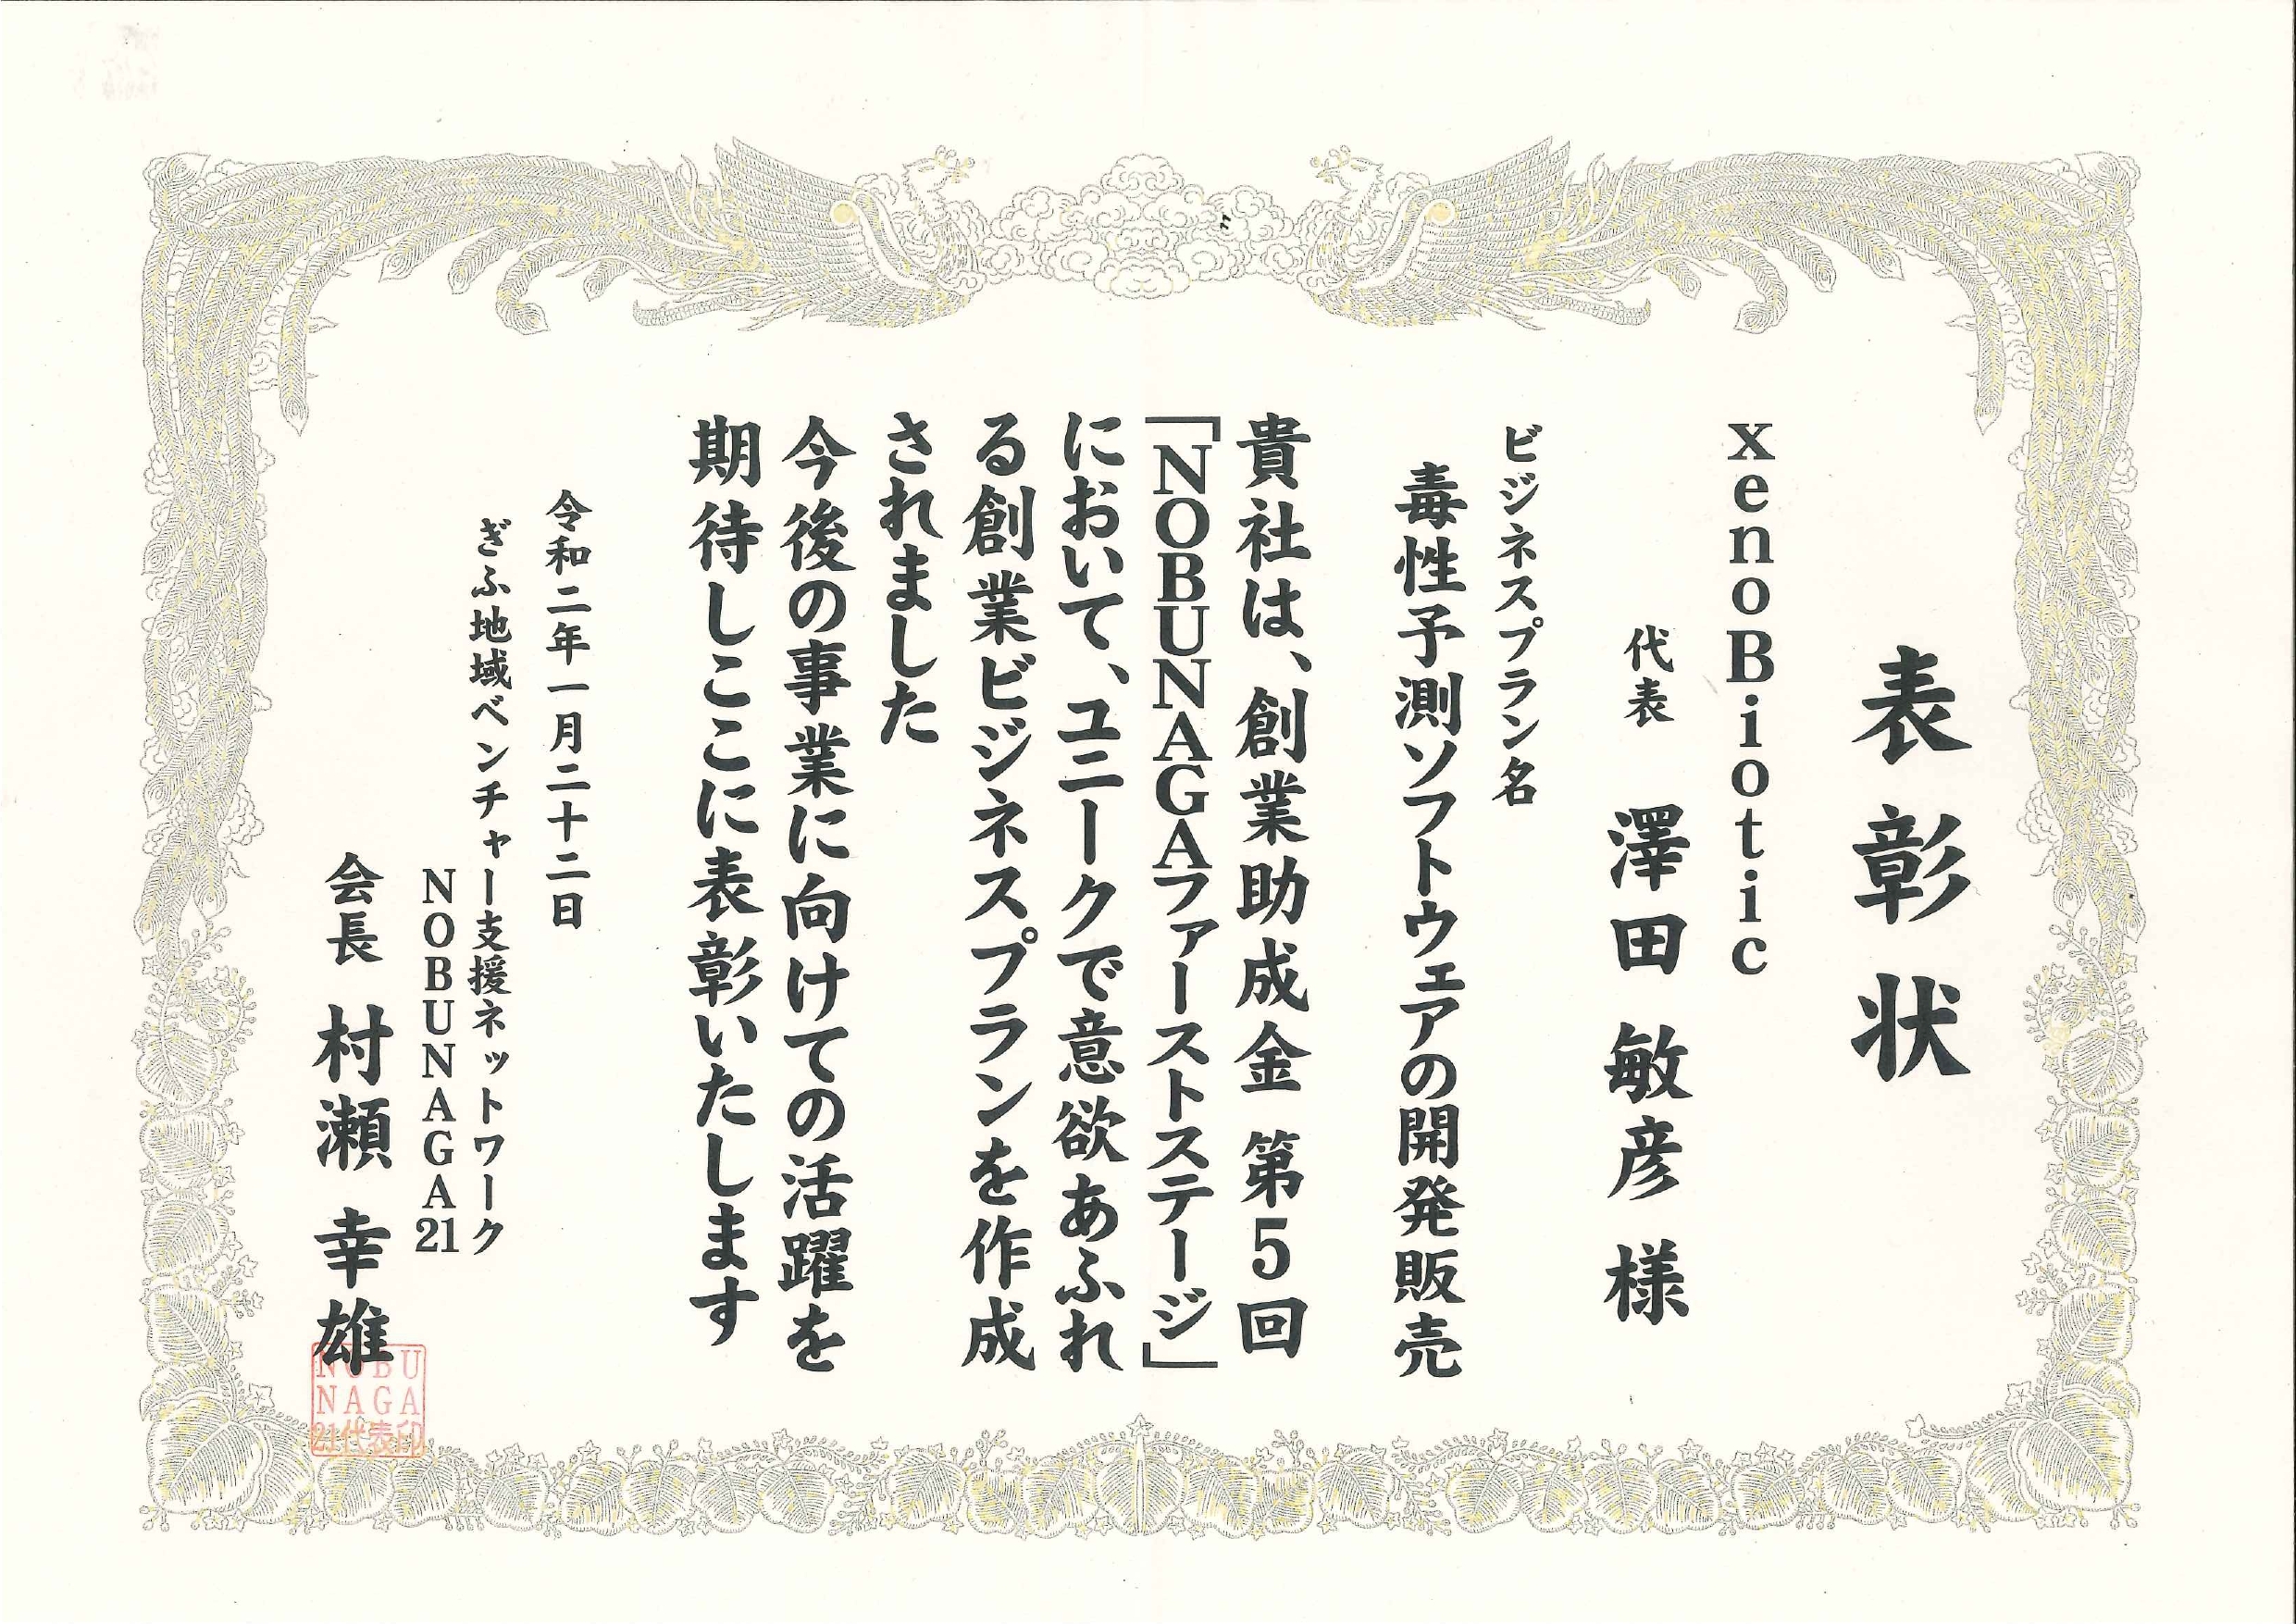 表彰状
xenoBiotic
代表 澤田 敏彦 様
ビジネスプラン名
毒性予測ソフトウェアの開発販売
貴社は、創業助成金 第5回
「NOBUNAGAファーストステージ」
において、ユニークで意欲あふれ
る創業ビジネスプランを作成
されました
今後の事業に向けての活躍を
期待しここに表彰いたします
令和二年一月二十二日
ぎふ地域ベンチャー支援ネットワーク
NOBUNAGA21
会長 村瀬 幸雄
NOBU
NAGA
21代表印